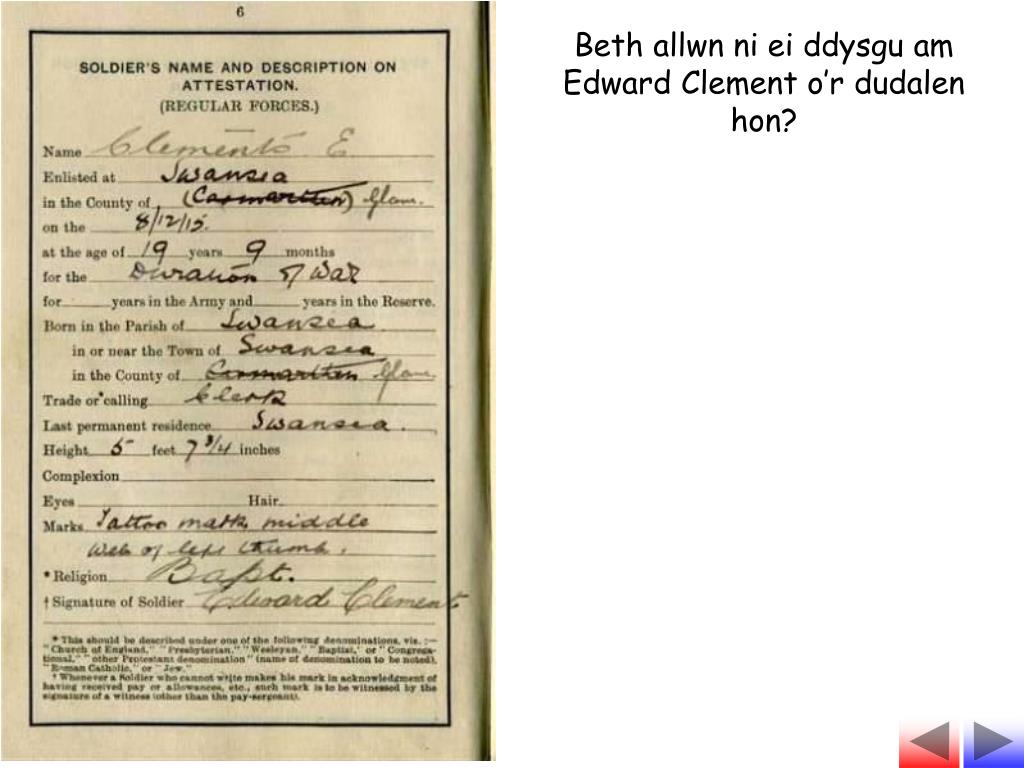 6
SOLDIER'S NAME AND DESCRIPTION ON
ATTESTATION.
(REGULAR FORCES.)
Name Clements E
Enlisted at Swansea
in the County of (Carmarthen) Glam.
on the 8/12/15.
at the age of 19 years 9 months
for the Duration of War
for years in the Army and years in the Reserve.
Born in the Parish of Swansea
in or near the Town of Swansea
in the County of Carmarthen Glam.
Trade or calling Clerk
Last permanent residence Swansea.
Height 5 feet 7 3/4 inches
Complexion
Eyes Hair
Marks Tattoo mark middle
web of left thumb.
* Religion Bapt.
† Signature of Soldier Edward Clement
* This should be described under one of the following denominations, viz. :—
"Church of England," "Presbyterian," "Wesleyan," "Baptist," or "Congrega-
tional," "other Protestant denomination" (name of denomination to be noted),
"Roman Catholic," or "Jew."
† Whenever a Soldier who cannot write makes his mark in acknowledgment of
having received pay or allowances, etc., such mark is to be witnessed by the
signature of a witness (other than the pay-sergeant).
Beth allwn ni ei ddysgu am
Edward Clement o'r dudalen
hon?